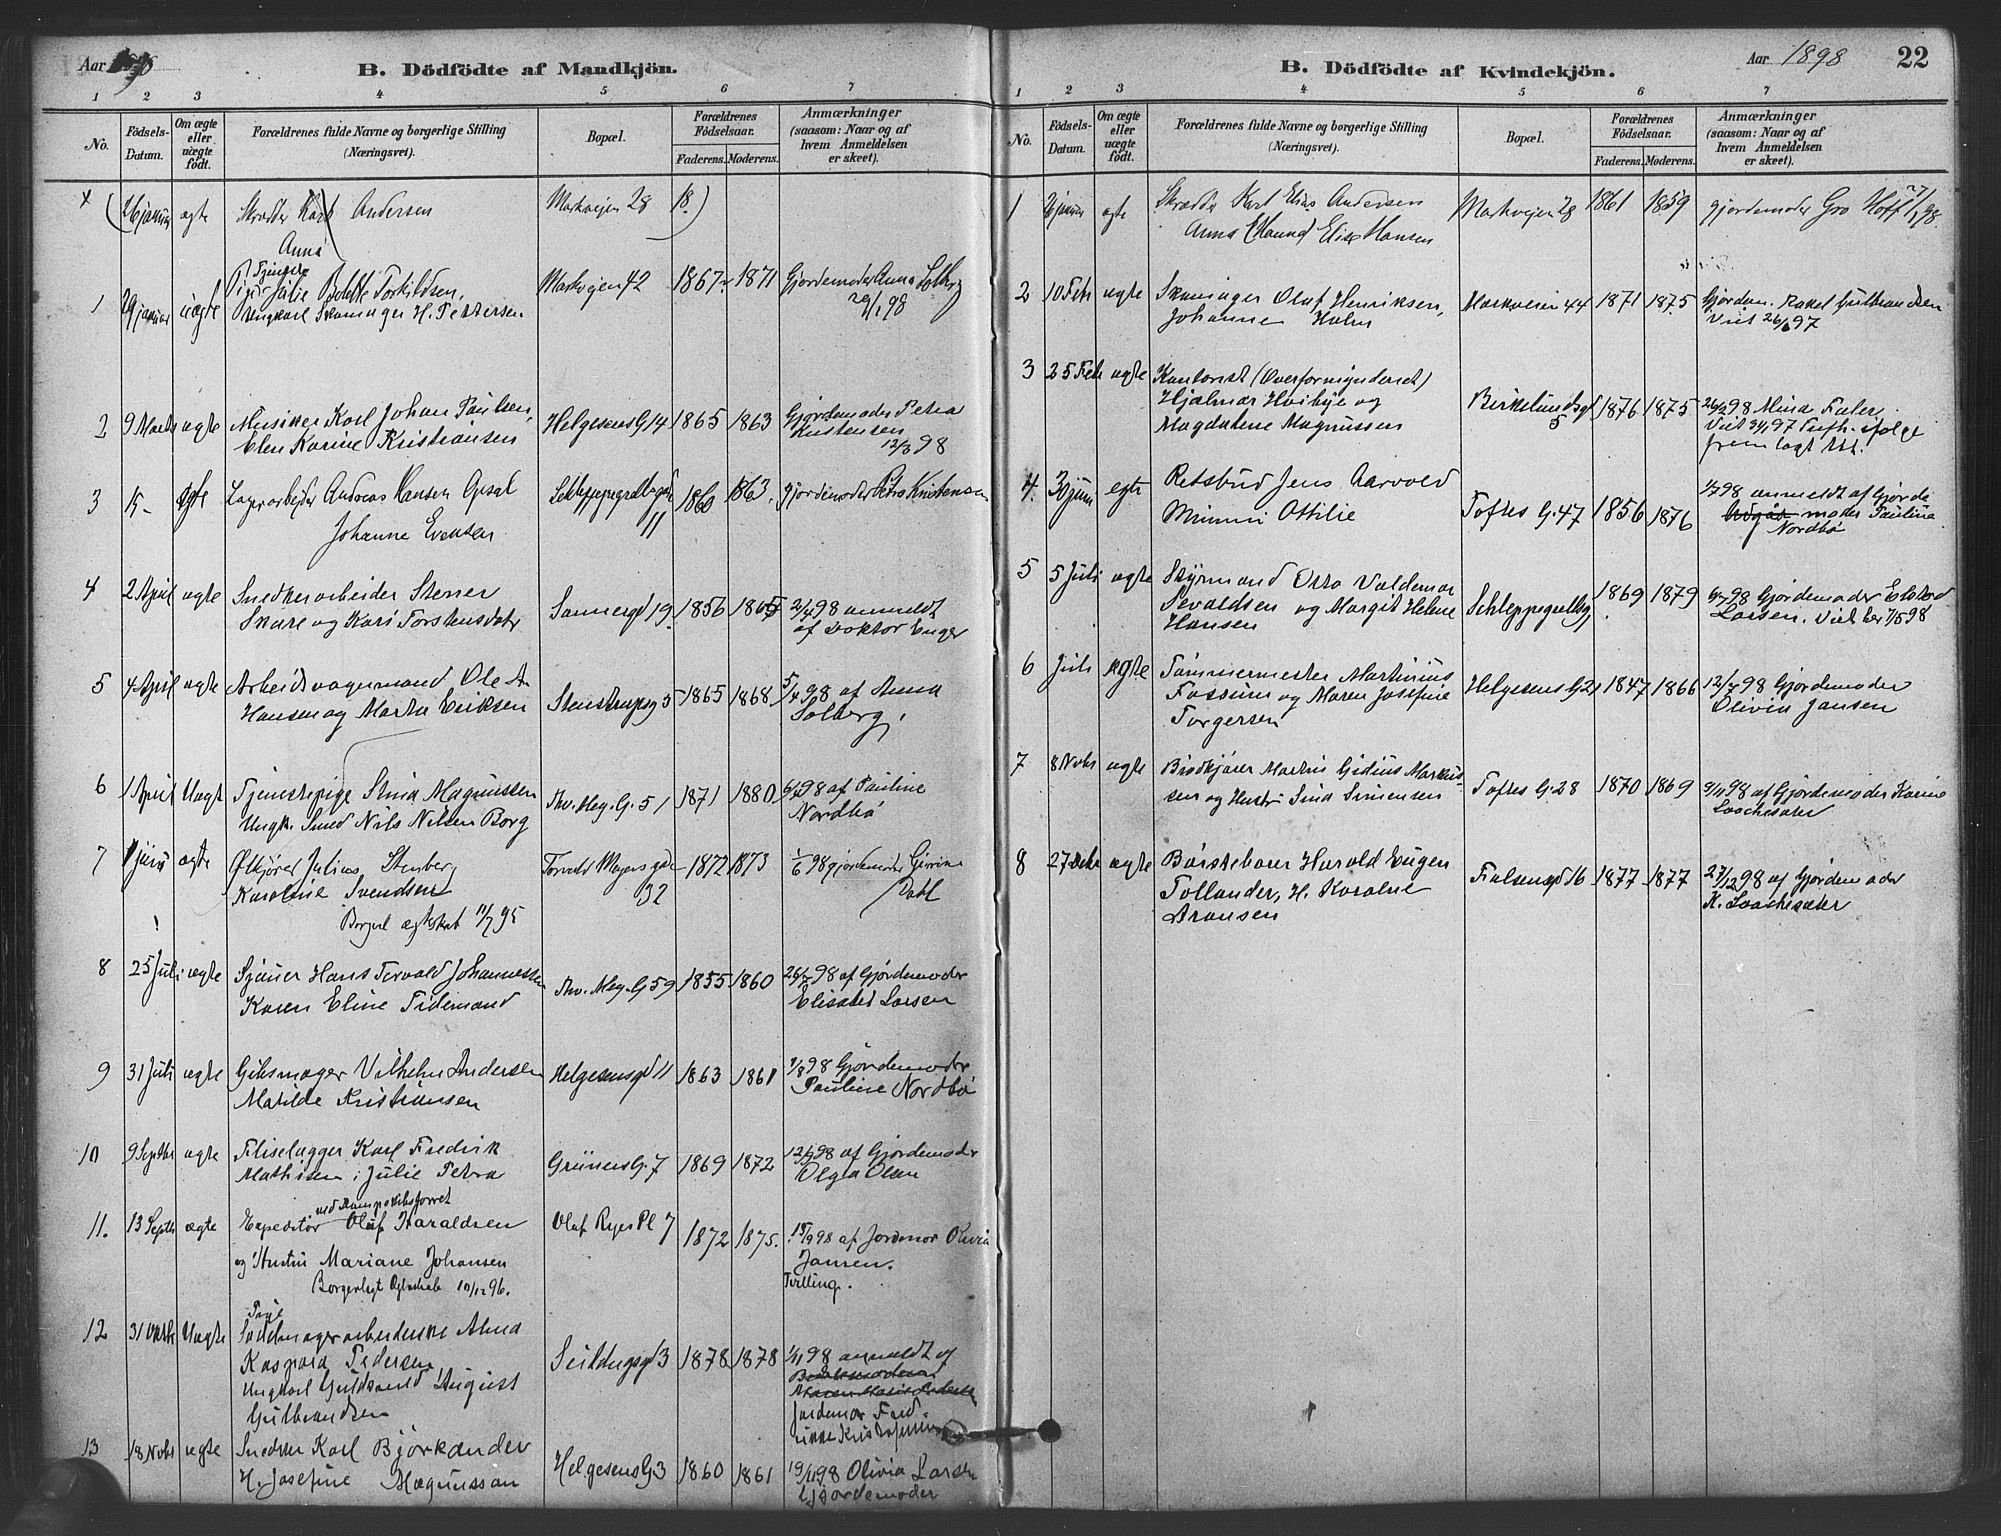 B. Dödfödte af Mandkjön.
Aar
1 2 3 4 5 6 7
No.
Födsels-Datum.
Om ægte eller uægte födt.
Forældrenes fulde Navne og borgerlige Stilling
(Næringsvei).
Bopæl.
Forældrenes Födselsaar.
Faderens. Moderens.
Anmærkninger
(saasom: Naar og af
hvem Anmeldelsen
er skeet).
ægte Skrædder Karl Andersen Markveien 28 18
Anna
1 29 januar uægte Pige Julie Bolette Torkildsen, Markveien 42 1867 1871 Gjordemoder Anna Solberg
Ungkarl Skomager H. Pettersen 29/1 98
2 9 Marts ægte Musiker Karl Johan Paulsen, Helgesens G 14 1865 1863 Gjordemoder Petra
Elen Karine Kristiansen Kristensen
12/3 98
3 15 - ægte Lagerarbeider Andreas Hansen Opsal 11 1860 1863 gjordemoder Petra Kristensen
Johanne Evensen
4 2 April ægte Snedkerarbeider Stener Sannergd 19. 1856 2/4 98 anmeldt
Skare og Kari Torstensdatr af Doktor Enger
5 4 April ægte Arbeidsvognmand Ole A. Stenstrupsg 5 1865 1868 5/4 98 af Anna
Hansen og Marta Eriksen Solberg
6 1 April Uægt Tjenestepige Stina Magnussen Thv. Mey. G. 51 1871 1880 6/4 98 af Pauline
Ungk. Smed Nils Nilsen Borg Nordbø
7 juni ægte Ølkjører Julius Stenberg Torvald Meyers gade 1872 1873 1/6 98 gjordemoder
Karoline Svendsen 32 Dahl
Borgerl ægteskab 11/7 95
8 25 Juli ægte Sjauer Hans Torvald Johannessen Thv. Mey. G 59 1855 1860 26/7 98 af Gjordemoder
Karen Eline Tidemand Elisabet Larsen
9 31 Juli ægte Gibsmager Vilhelm Andersen Helgesensgd 11 1863 1861 1/8 98 Gjordemoder
Matilde Kristiansen Pauline Nordbø
10 9 Septbr ægte Fliselægger Karl Fredrik Grüners G. 7 1869 1872 12/9 98 af Gjordemoder
Mathisen; Julie Petra Olga Olsen
11. 13 Septbr ægte Expeditör Olaf Haraldsen Olaf Ryes Pl 7 1872 1875. 15/9 98 af Jordmor Olivia
og Hustru Mariane Johansen Jansen.
Borgerligt Ægteskab 10/12 96. Tvilling.
12 31 Oktbr Uægte Pige
Sadelmagerarbeiderske Alma Seildugsgd 3 1878 1878 1/11 98 anmeldt af
Kaspara Pedersen
Ungkarl Guldsmed August
Gulbrandsen Jordemor
13 18 Novbr ægte Snedker Karl Björkander Helgesens G. 3 1860 1861 19/11 98 Olivia Larsen
H. Josefine Magnusson Gjordemoder
B. Dödfödte af Kvindekjön.
Aar 1898 22
1 2 3 4 5 6 7
No.
Födsels-Datum.
Om ægte eller uægte födt.
Forældrenes fulde Navne og borgerlige Stilling
(Næringsvei).
Bopæl.
Forældrenes Födselsaar.
Faderens. Moderens.
Anmærkninger
(saasom: Naar og af
hvem Anmeldelsen
er skeet).
1 januar ægte Skrædder Karl Elias Andersen Markveien 28 1861 1859 gjordemoder Gro Hoff
Anna Elise Hansen
2 10 Febr ægte Skomager Olaf Henriksen, Markveien 44 1871 1875 Gjordem. Rakel Gulbrandsen
Johanne Holm Viet
3 25 Febr ægte Kontorist (Overformynderiet)
Hjalmar Høibye og Birkelundsgt 5 1876 1875 26/2 98 Mina
Magdalene Magnussen
fremlagt Att.
4. 30 juni ægte Retsbud Jens Aarvold Toftes G. 47 1856 1876 1/7 98 anmeldt af Gjorde
Minni Ottilie moder Pauline
Nordbø
5 5 Juli ægte Styrmand Otto Valdemar Schleppegrellsg 1869 1879 6/7 98 Gjordemoder
Sevaldsen og Margit Helene Larsen. Viet her 7/5 98
Hansen
6 Juli ægte Tømmermester Martinius Helgesens G 21 1847 1866 12/7 98 Gjordemoder
Fossum og Maren Josefine Olivia Jansen
Torgersen
7 8 Novbr ægte Brødkjører Martin Gidius Markus- Toftes G. 28 1870 1869 9/11 98 af Gjordemoder Karine
sen og Hustru Sina Simensen
8 27 Debr ægte Børstebinder Harald Eugen Falsensgd 16 1877 1877 27/12 98 af Gjordemoder
Tollander, H. Karoline K.
Aronsen